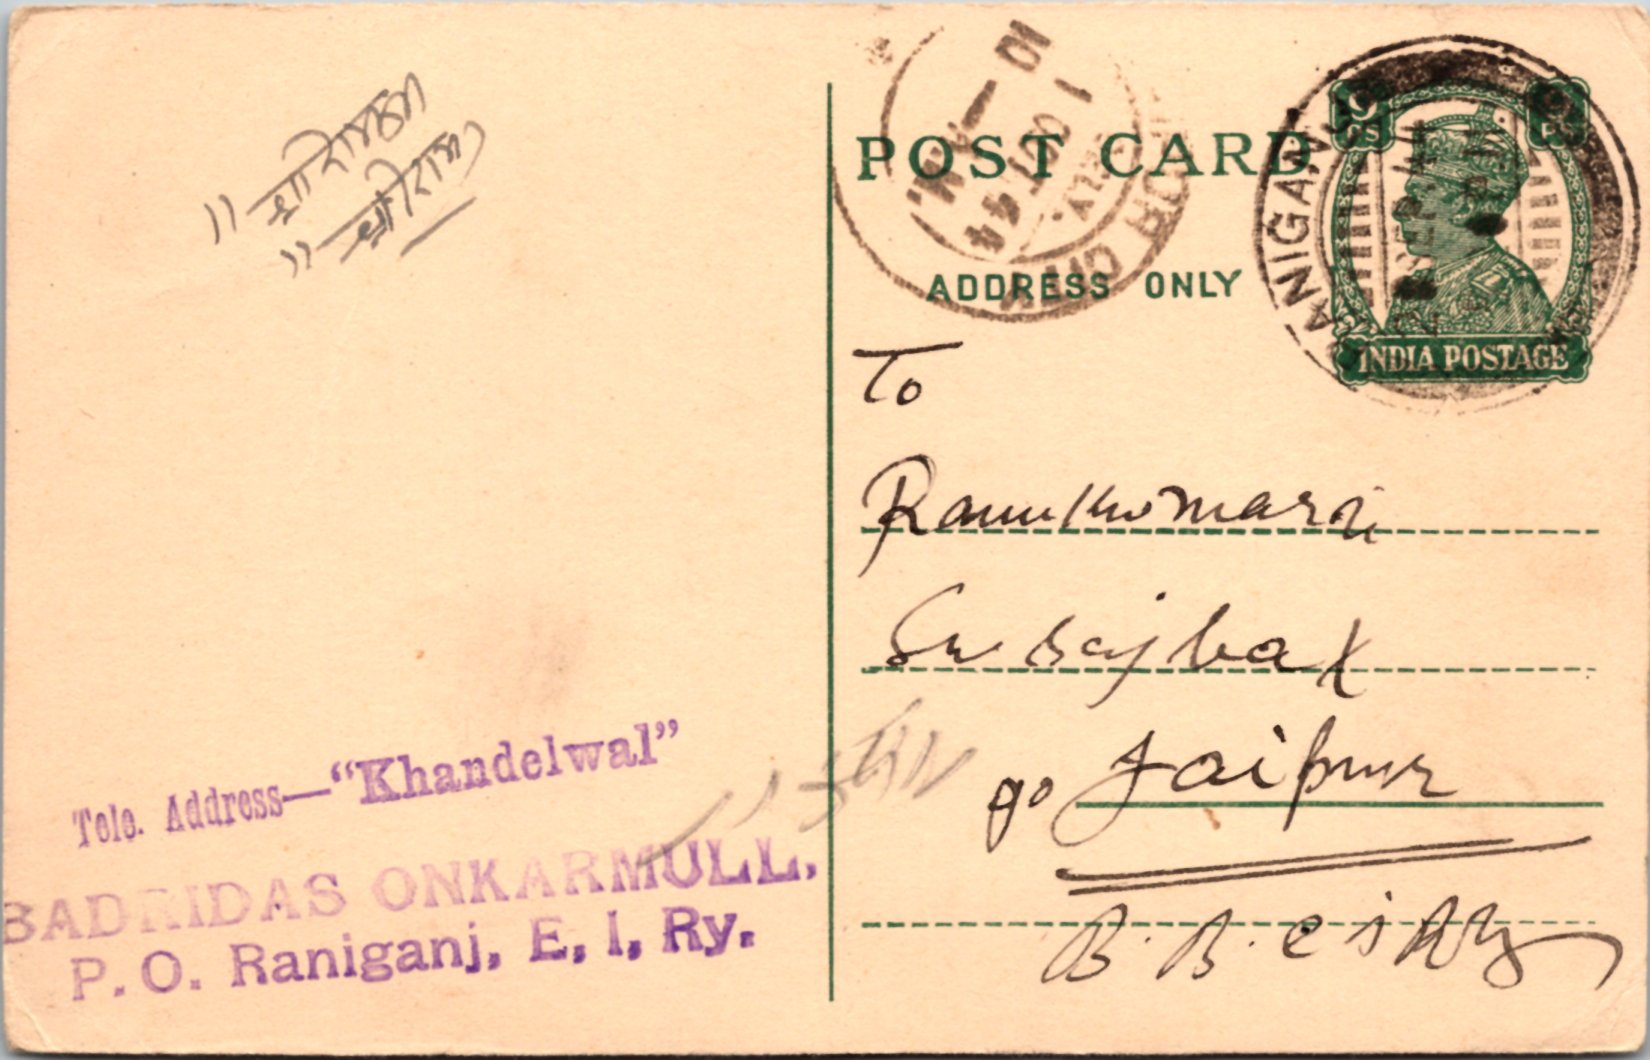 POST CARD
ADDRESS ONLY
9 PS
INDIA POSTAGE
RANIGANJ
10 — A.M.
1 OCT 44
To
Ramkumar
Surajbax
Jaipur
B. B. & C I Ry
Tele. Address—“Khandelwal”
BADRIDAS ONKARMULL,
P. O. Raniganj, E, I, Ry.